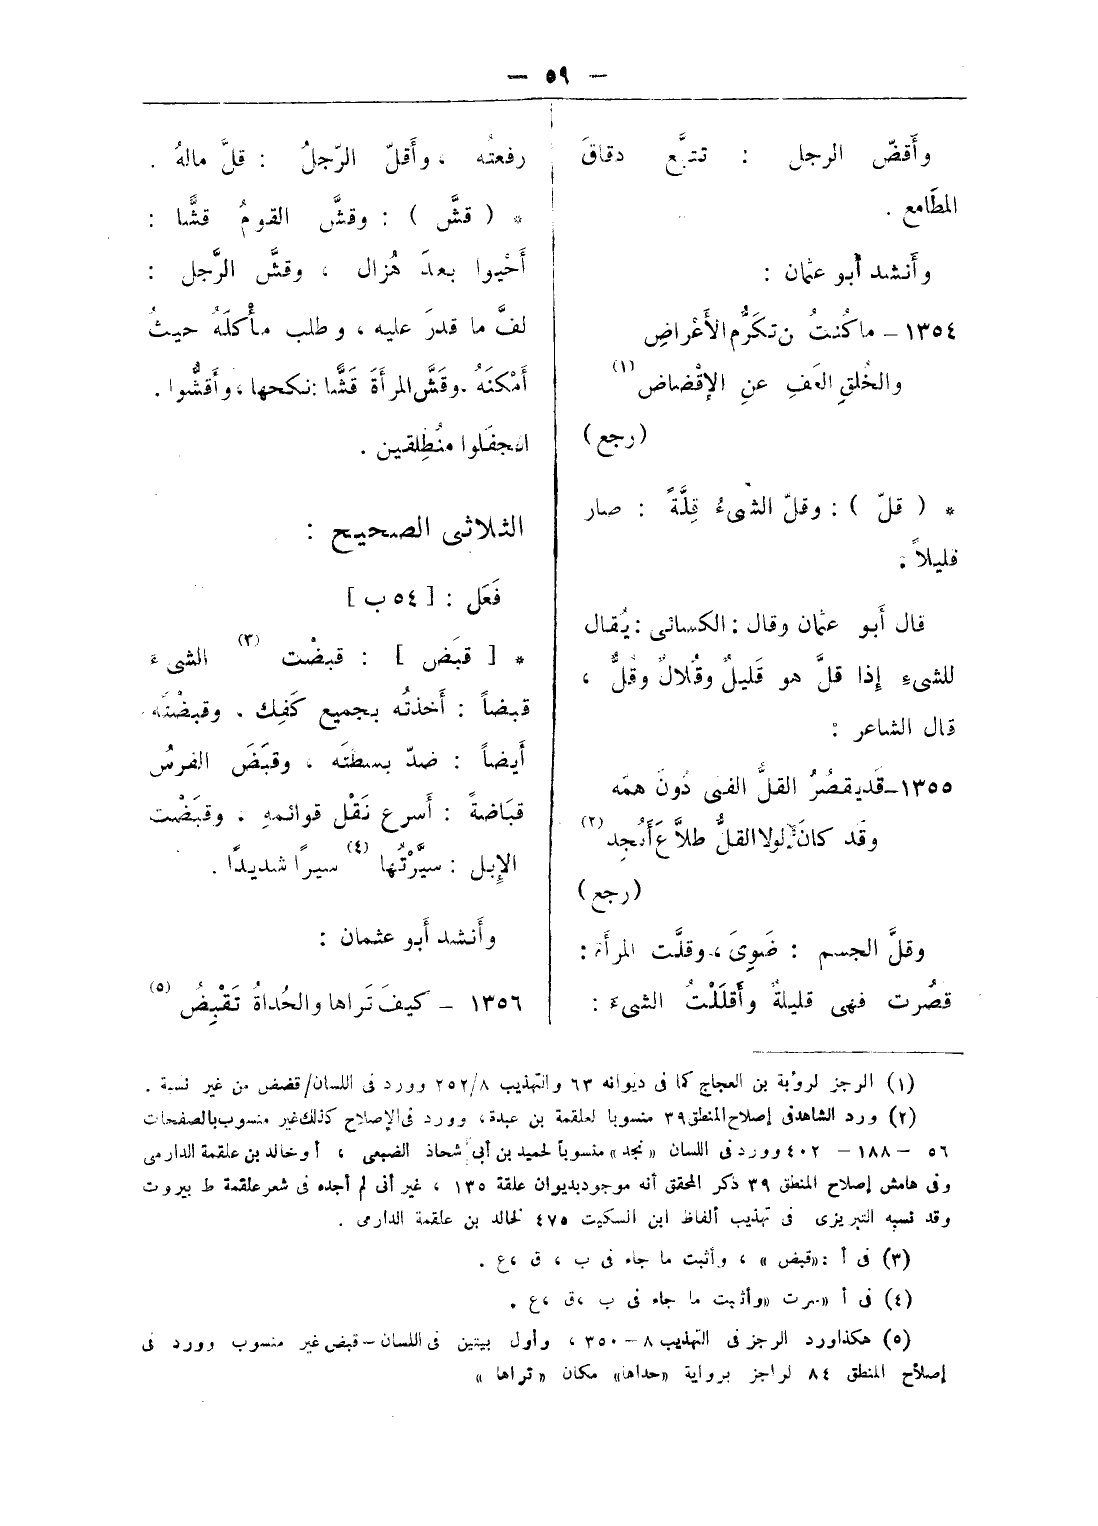 — ٥٩ —
وأَقضّ الرجل : تتبَّع دقاقَ
المطَامع .
وأَنشد أبو عثمان :
١٣٥٤ – ما كُنتُ ن تكرُّم الأَعْراضِ
والخُلقِ العَفِ عنِ الإقْضاض (١)
(رجع)
* ( قلّ ) : وقلّ الشىءُ قِلَّةً : صار
قليلاً .
قال أَبو عثمان وقال : الكسائى : يُقال
للشىءِ إِذا قلَّ هو قَليلٌ وقُلالٌ وقُلٌّ ،
قال الشاعر :
١٣٥٥ – قَد يقصُرُ القلُّ الفتى دُونَ همّه
وقَد كانَ لولا القلُّ طلاَّعَ أَنْجِد (٢)
(رجع)
وقلَّ الجسم : ضَوِىَ ، وقلَّت المرأَة :
قصُرت فهى قليلةٌ وأَقلَلْتُ الشىءَ :
رفعتُه ، وأَقلّ الرّجلُ : قلَّ مالهُ .
* ( قشَّ ) : وقشَّ القومُ قشًّا :
أَحْيوا بعدَ هُزال ، وقشَّ الرَّجل :
لفَّ ما قدرَ عليه ، وطلب مأْكلَهُ حيثُ
أَمْكنَهُ . وقَشَّ المرأَةَ قَشًّا : نكحها ، وأَقشُّوا .
انجفَلوا منْطِلقين .
الثلاثى الصحيح :
فَعَل : [ ٥٤ ب ]
* [ قبَض ] : قبضْت (٣) الشىءَ
قبضاً : أَخذتُه بجميع كَفِك . وقبضْتَه
أَيضاً : ضدّ بسطتَه ، وقبَضَ الفرسُ
قبَاضةً : أَسرع نَقْل قوائمهِ ، وقبَضْت
الإِبل : سيَّرْتُها (٤) سيرًا شديدًا .
وأَنشد أَبو عثمان :
١٣٥٦ – كيفَ تَراها والحُداةُ تَقْبِضُ (٥)
(١) الرجز لرؤبة بن العجاج كما فى ديوانه ٦٣ والتهذيب ٢٥٢/٨ وورد فى اللسان/قضض من غير نسبة .
(٢) ورد الشاهد فى إصلاح المنطق ٣٩ منسوبا لعلقمة بن عبدة، وورد فى الإصلاح كذلك غير منسوب بالصفحات
٥٦ – ١٨٨ – ٤٠٢ وورد فى اللسان «نجد» منسوباً لحميد بن أبى شحاذ الضبعى ، أو خالد بن علقمة الدارمى
وفى هامش إصلاح المنطق ٣٩ ذكر المحقق أنه موجود بديوان علقة ١٣٥ ، غير أنى لم أجده فى شعر علقمة ط بيروت
وقد نسبه التبريزى فى تهذيب ألفاظ ابن السكيت ٤٧٥ لخالد بن علقمة الدارمى .
(٣) فى أ : «قبض » ، وأثبت ما جاء فى ب ، ق ،ع .
(٤) فى أ «‫سرت‬ «وأثبت ما جاء فى ب ،ق ،ع .
(٥) هكذا ورد الرجز فى التهذيب ٨ – ٣٥٠ ، وأول بيتين فى اللسان – قبض غير منسوب وورد فى
إصلاح المنطق ٨٤ لراجز برواية «حداها» مكان «تراها »